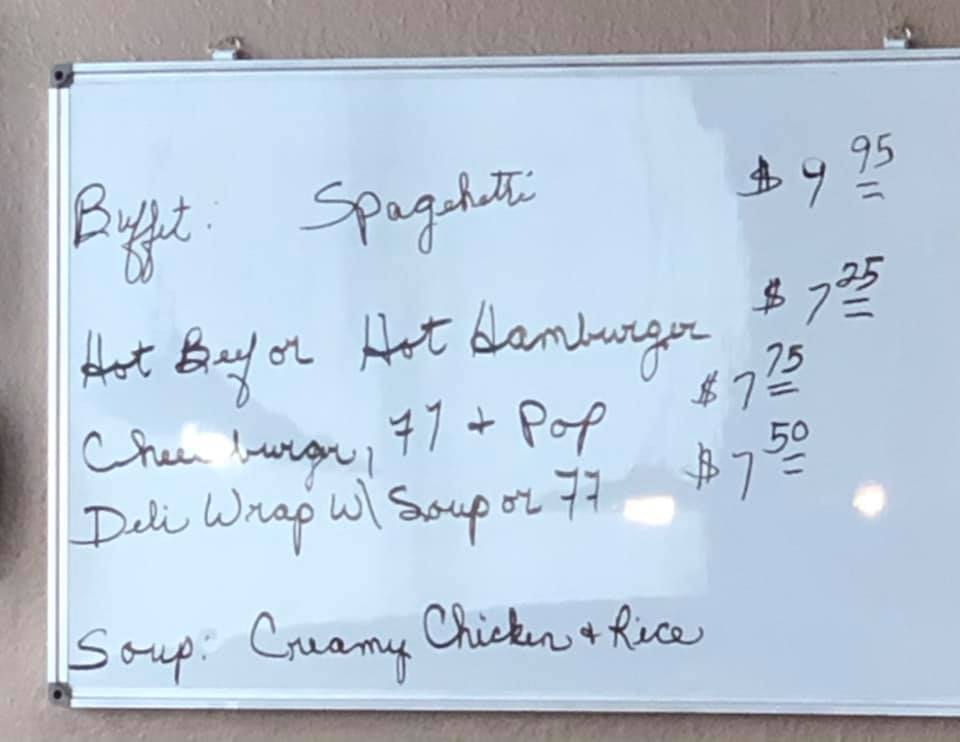 Buffet: Spagehetti $9 95
Hot Beef or Hot Hamburger $7 25
Cheeseburger, 77 + Pop $7 75
Deli Wrap W\ Soup or 77 $7 50
Soup: Creamy Chicken + Rice